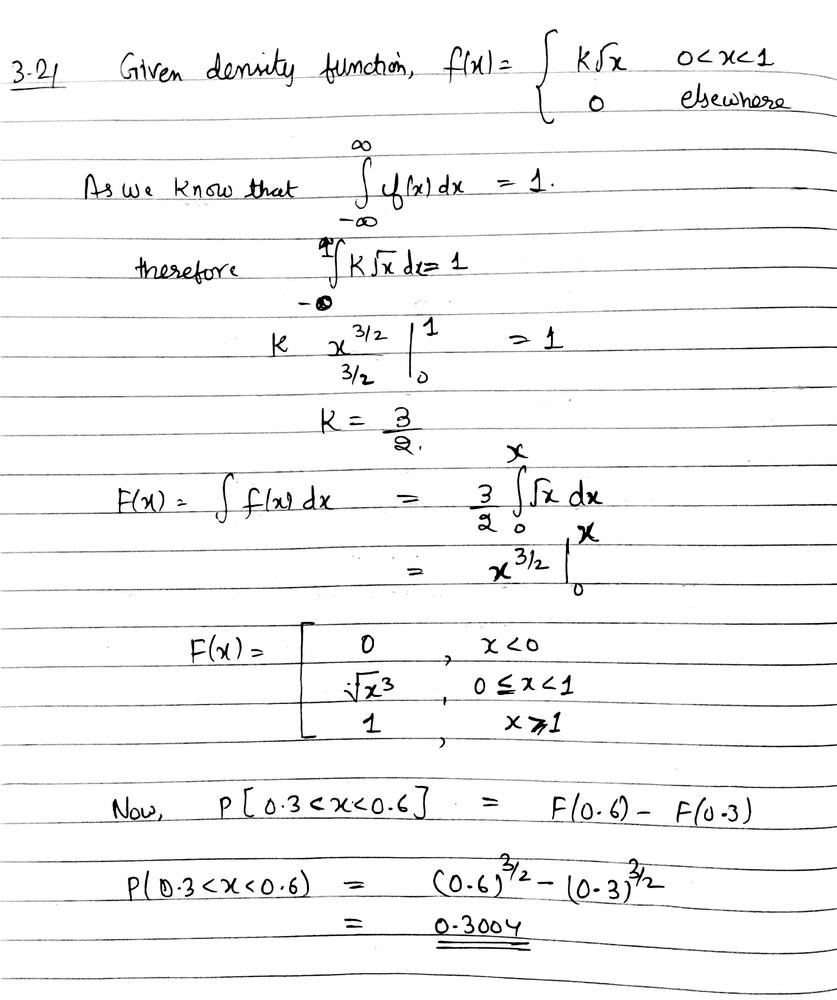 3.21 Given density function, f(x) = { k√x 0<x<1
0 elsewhere
As we know that ∫_{-∞}^{∞} f(x) dx = 1.
therefore ∫_{-0}^{1} k√x dx = 1
k x^{3/2} / 3/2 |_0^1 = 1
k = 3/2.
F(x) = ∫ f(x) dx = 3/2 ∫_0^x √x dx
= x^{3/2} |_0^x
F(x) = [ 0 , x<0
√x³ , 0≤x<1
1 , x≥1
Now, P[0.3<x<0.6] = F(0.6) - F(0.3)
P(0.3<x<0.6) = (0.6)^{3/2} - (0.3)^{3/2}
= 0.3004